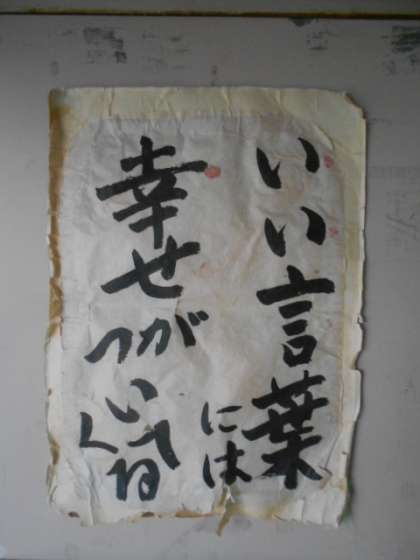 いい言葉
には
幸せが
ついてくる